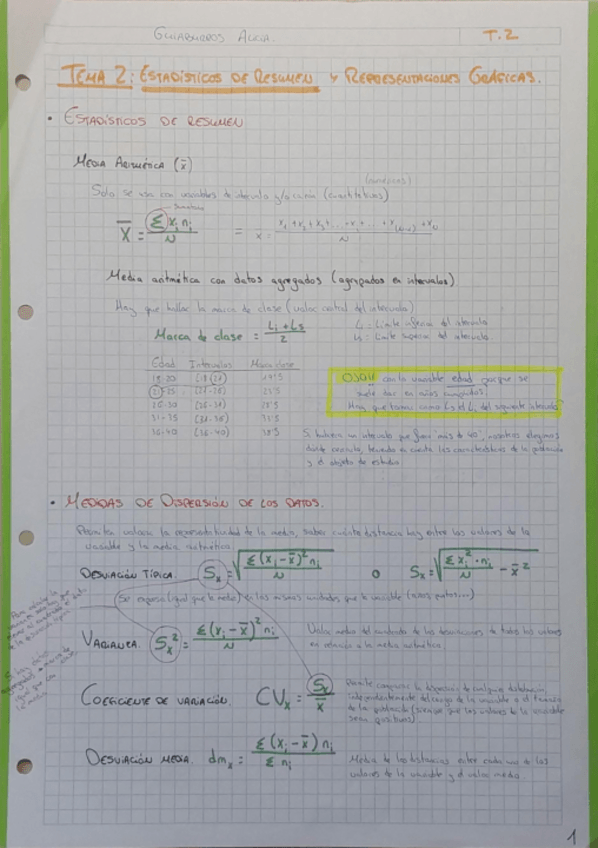 T.2
TEMA 2: ESTADÍSTICOS DE RESUMEN Y REPRESENTACIONES GRÁFICAS.
• ESTADÍSTICOS DE RESUMEN
MEDIA ARITMÉTICA (x̄)
Solo se usa con variables de intervalo y/o razón (cuantitativas)
(numéricas)
Sumatorio
X̄ = Σ xᵢ nᵢ / N = x̄ = x₁ + x₂ + x₃ + ... + xᵢ + ... + x₍N-1₎ + x_N / N
Media aritmética con datos agregados (agrupados en intervalos)
Hay que hallar la marca de clase (valor central del intervalo)
Marca de clase = Lᵢ + Ls / 2
Lᵢ = Límite inferior del intervalo
Ls = Límite superior del intervalo.
Edad Intervalos Marca clase
21-25 (21-26)
26-30 (26-31) 28'5
31-35 (31-36) 33'5
36-40 38'5
con la variable edad porque se
suele dar en años cumplidos.
Hay que tomar como Ls el Lᵢ del siguiente intervalo
Si hubiera un intervalo que fuera "más de 40", nosotros elegimos
dónde cerrarlo, teniendo en cuenta las características de la población
y el objeto de estudio
• MEDIDAS DE DISPERSIÓN DE LOS DATOS.
Permiten valorar la representatividad de la media, saber cuánta distancia hay entre los valores de la
variable y la media aritmética.
DESVIACIÓN TÍPICA. Sx = √ Σ (xᵢ - x̄)² nᵢ / N o Sx = √ Σ xᵢ² · nᵢ / N - x̄²
Se expresa (igual que la media) en las mismas unidades que la variable
VARIANZA. Sx² = Σ (xᵢ - x̄)² nᵢ / N
Valor medio del cuadrado de las desviaciones de todos los valores
en relación a la media aritmética.
COEFICIENTE DE VARIACIÓN. CVx = Sx / x̄
Permite comparar la dispersión de cualquier distribución,
independientemente del rango de la variable o el tamaño
de la población (siempre que los valores de la variable
sean positivos).
DESVIACIÓN MEDIA. dmx = Σ (xᵢ - x̄) nᵢ / Σ nᵢ
Media de las distancias entre cada uno de los
valores de la variable y el valor medio.
1